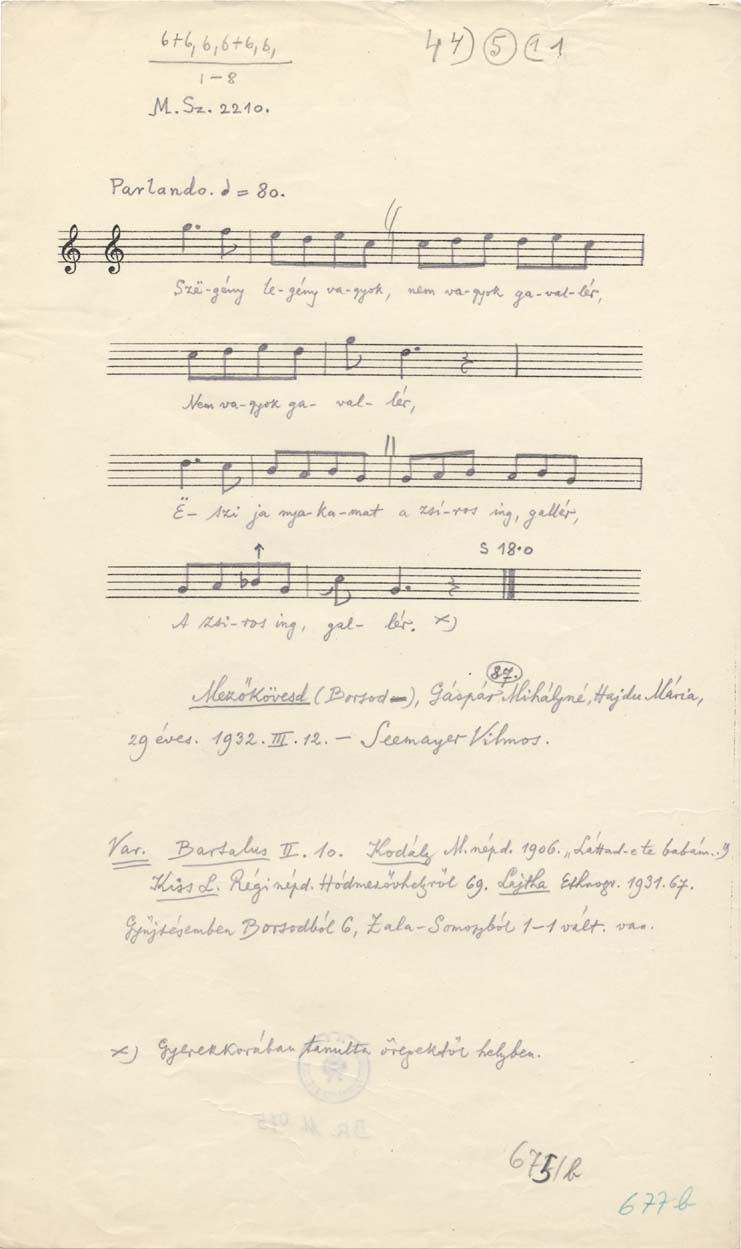 6+6, 6, 6+6, 6,
1-8
44) 5 (1 1
M. Sz. 2210.
Parlando. = 80.
Szë-gény le-gény va-gyok, nem va-gyok ga-val-lér,
Nem va-gyok ga- val- lér,
Ë- szi ja nya-ka-mat a zsí-ros ing, gallér,
S 18·0
A zsi-ros ing, gal- lér. x)
87.
Mezőkövesd (Borsod-), Gáspár Mihályné, Hajdu Mária,
29 éves. 1932. III. 12. - Seemayer Vilmos.
Var. Bartalus II. 10. Kodály M. népd. 1906. „Láttad-e te babám..."
Kiss L. Régi népd. Hódmezővhelyről 69. Lajtha Ethnogr. 1931. 67.
Gyűjtésemben Borsodból 6, Zala-Somogyból 1-1 vált. van.
x) Gyerekkorában tanulta öregektől helyben.
675/b
677b